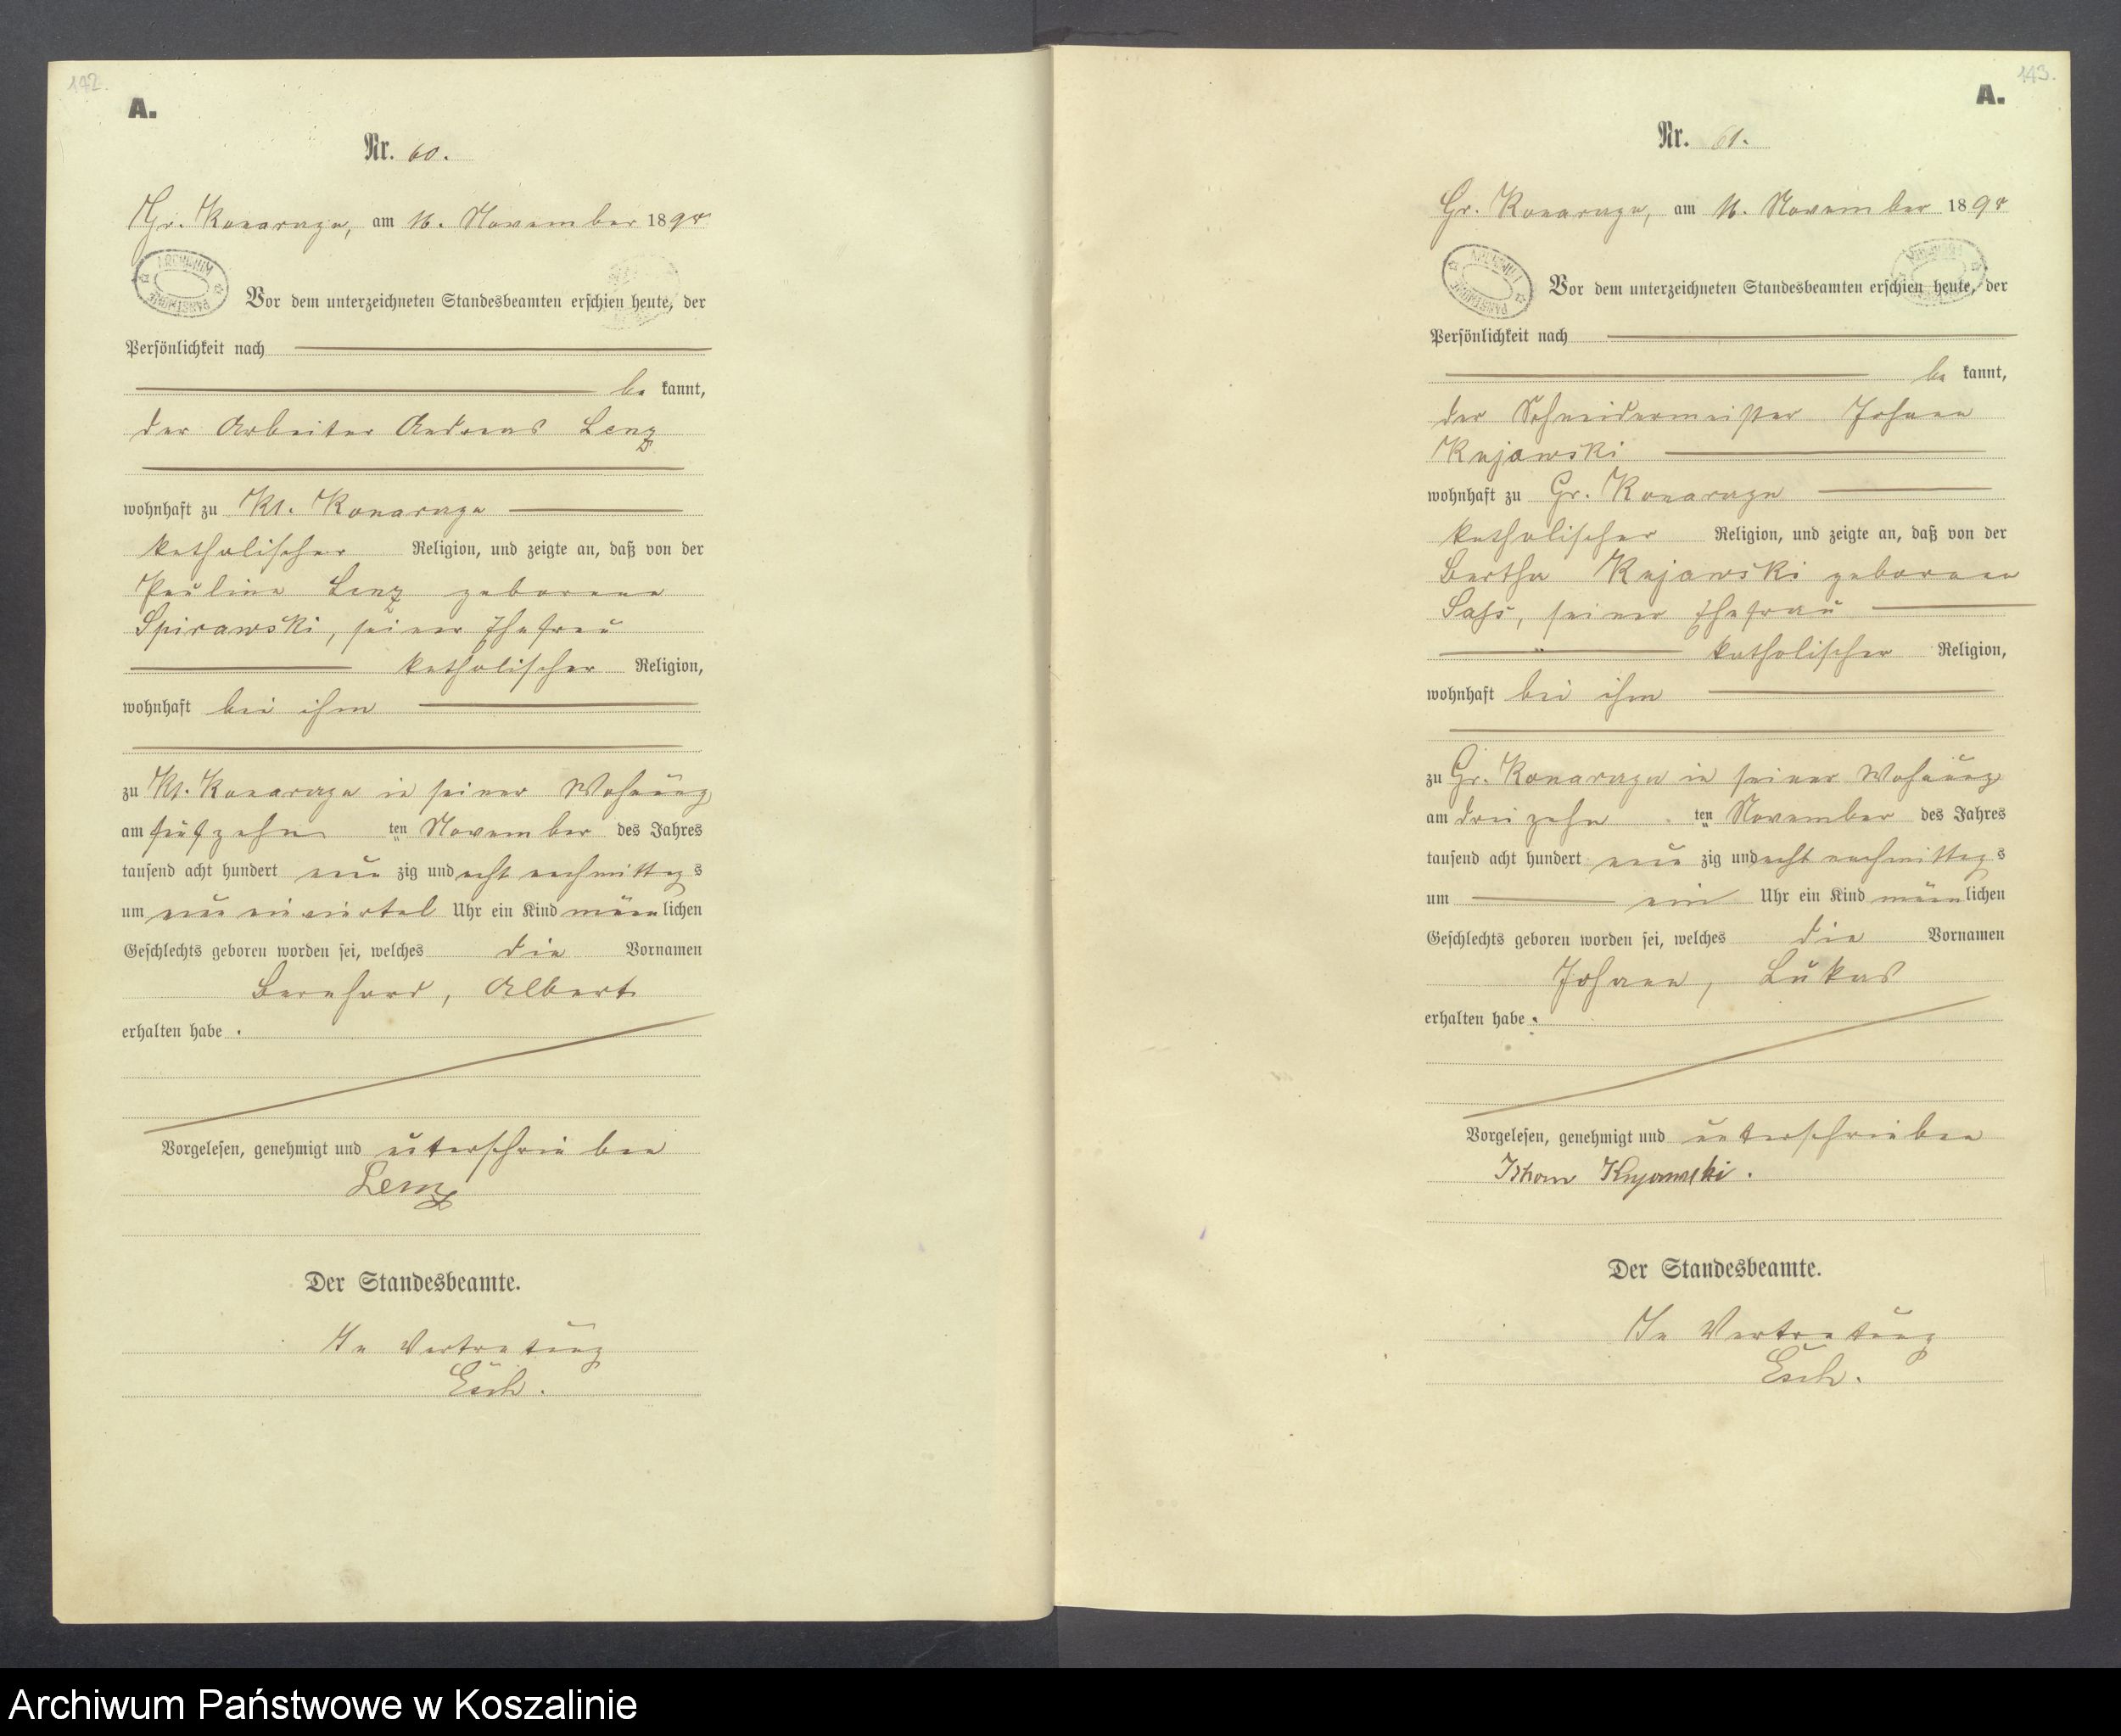 142.
A.
Nr. 60.
Gr. Konarzyn, am 16. November 1898
Vor dem unterzeichneten Standesbeamten erschien heute, der
Persönlichkeit nach
be kannt,
der Arbeiter Andreas Lenz
wohnhaft zu Kl. Konarzyn
katholischer Religion, und zeigte an, daß von der
Pauline Lenz geborene
Spirawski, seiner Ehefrau
katholischer Religion,
wohnhaft bei ihm
zu Kl. Konarzyn in seiner Wohnung
am fünfzehn ten November des Jahres
tausend acht hundert neun zig und acht nachmittags
um neuneinviertel Uhr ein Kind männlichen
Geschlechts geboren worden sei, welches die Vornamen
Bernhard, Albert
erhalten habe.
Vorgelesen, genehmigt und unterschrieben
Lenz
Der Standesbeamte.
In Vertretung
Esch.
143.
A.
Nr. 61.
Gr. Konarzyn, am 16. November 1898
Vor dem unterzeichneten Standesbeamten erschien heute, der
Persönlichkeit nach
be kannt,
der Schneidermeister Johann
Kujawski
wohnhaft zu Gr. Konarzyn
katholischer Religion, und zeigte an, daß von der
Bertha Kujawski geborenen
Saß, seiner Ehefrau
katholischer Religion,
wohnhaft bei ihm
zu Gr. Konarzyn in seiner Wohnung
am dreizehn ten November des Jahres
tausend acht hundert neun zig und acht nachmittags
um ein Uhr ein Kind männlichen
Geschlechts geboren worden sei, welches die Vornamen
Johann, Lukas
erhalten habe.
Vorgelesen, genehmigt und unterschrieben
Johann Kujawski.
Der Standesbeamte.
In Vertretung
Esch.
Archiwum Państwowe w Koszalinie